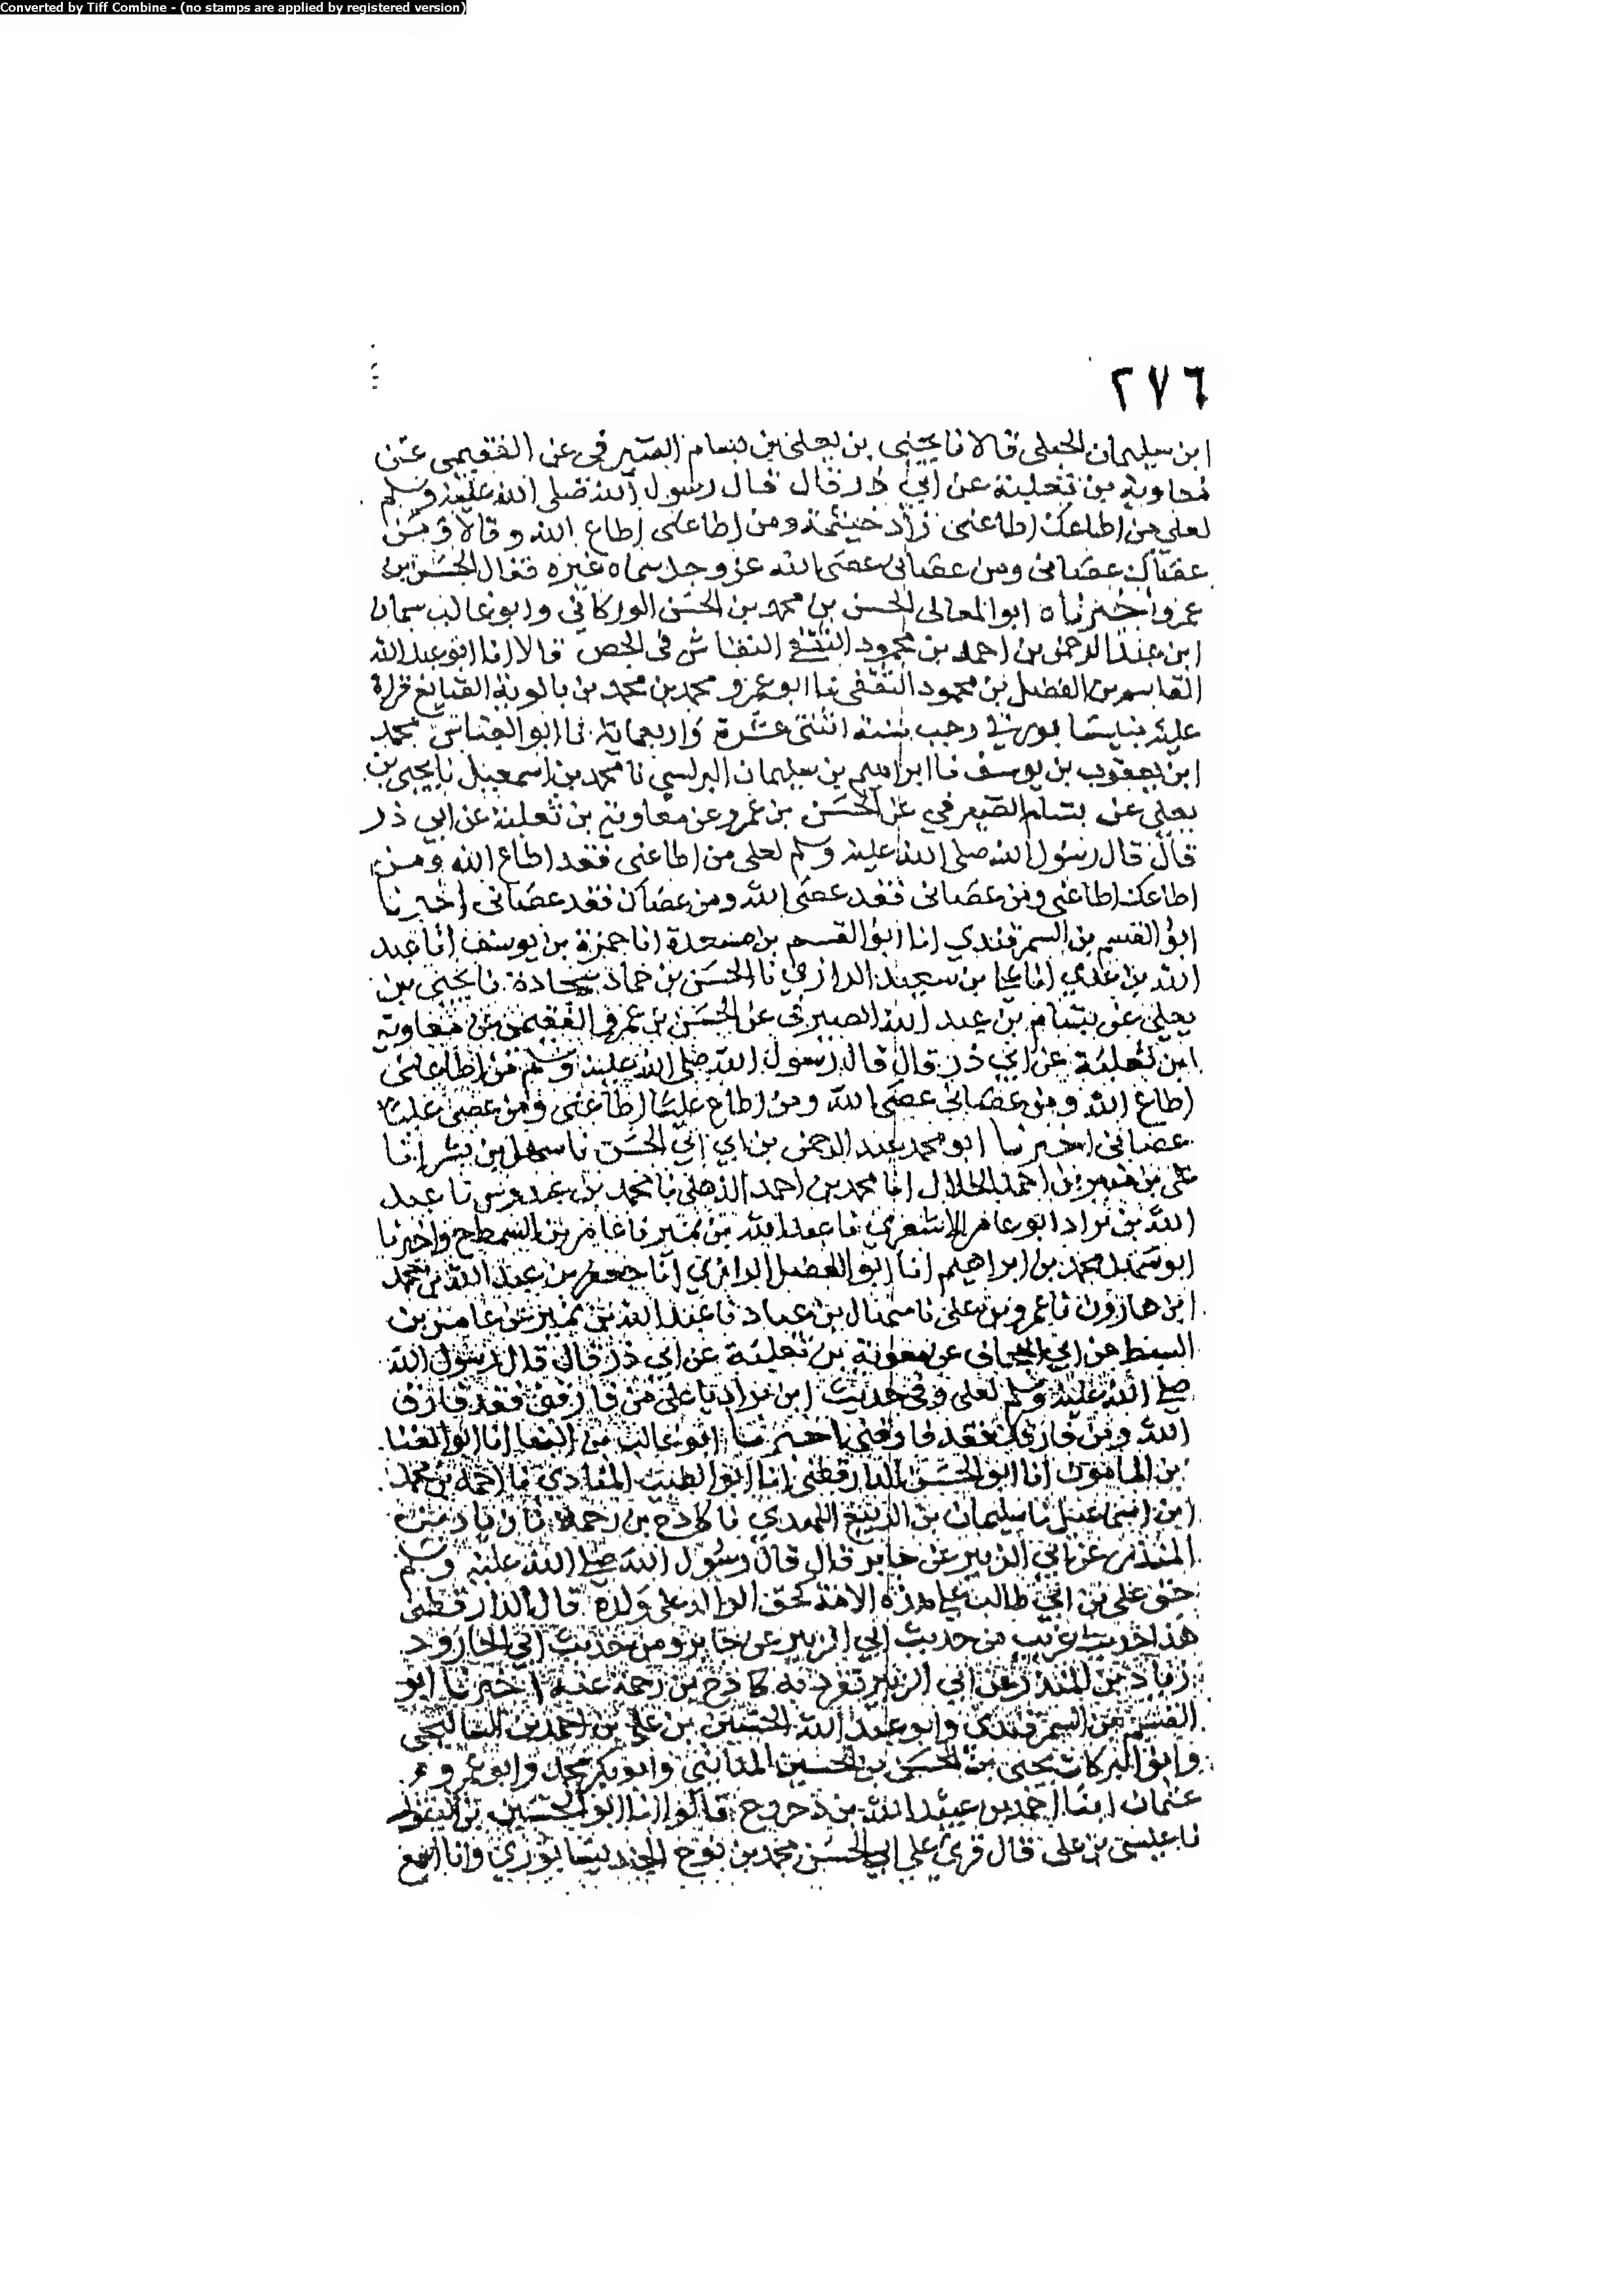 Converted by Tiff Combine - (no stamps are applied by registered version)
٢٧٦
ابن سليمان الجبلي قالا نا يحيى بن يعلى بن بسام الصيرفي عن الفقيمي عن
معاوية بن ثعلبة عن ابي ذر قال قال رسول الله صلى الله عليه وسلم
لعلي من اطاعك اطاعني زاد خيثمة ومن اطاعني اطاع الله وقالا ومن
عصاك عصاني ومن عصاني عصى الله عز وجل سماه غيره فقال الحسن بن
عمرو اخبرناه ابو المعالي الحسن بن محمد بن الحسن الوركاني وابو غالب سمان
ابن عبد الرحمن بن احمد بن محمود الثقفي النقاش في الجص قالا انا ابو عبد الله
القاسم بن الفضل بن محمود الثقفي نا ابو عمرو محمد بن محمد بن بالوية الصايغ قراة
عليه بنيسابور في رجب سنة اثنتي عشرة واربعماية نا ابو العباس محمد
ابن يعقوب بن يوسف نا ابراهيم بن سليمان البرلسي نا محمد بن اسمعيل نا يحيى بن
يعلى عن بسام الصيرفي عن الحسن بن عمرو عن معاوية بن ثعلبة عن ابي ذر
قال قال رسول الله صلى الله عليه وسلم لعلي من اطاعني فقد اطاع الله ومن
اطاعك اطاعني ومن عصاني فقد عصى الله ومن عصاك فقد عصاني اخبرنا
ابو القسم بن السمرقندي انا ابو القسم بن مسعدة انا حمزة بن يوسف انا عبد
الله بن عدي انا علي بن سعيد الرازي نا الحسن بن حماد سجادة نا يحيى بن
يعلى عن بسام بن عبد الله الصيرفي عن الحسن بن عمرو الفقيمي عن معاوية
ابن ثعلبة عن ابي ذر قال قال رسول الله صلى الله عليه وسلم من اطاعني
اطاع الله ومن عصاني عصى الله ومن اطاع عليا اطاعني ومن عصى عليا
عصاني اخبرنا ابو محمد عبد الرحمن بن ابي الحسن نا سهل بن بشر انا
علي بن منير بن احمد الخلال انا محمد بن احمد الذهلي نا محمد بن عبدوس نا عبد
الله بن براد ابو عامر الاشعري نا عبد الله بن نمير نا عامر بن السمط ح واخبرنا
ابو سهل محمد بن ابراهيم انا ابو الفضل الرازي انا جعفر بن عبد الله نا محمد
ابن هارون نا عمرو بن علي نا بن عباد نا عبد الله بن نمير عن عامر بن
السمط عن ابي الجحاف عن معوية بن ثعلبة عن ابي ذر قال قال رسول الله
صلى الله عليه وسلم لعلي وفي حديث ابن براد يا علي من فارقني فقد فارق
الله ومن فارقك فقد فارقني اخبرنا ابو غالب بن البنا انا ابو الغنا
بن المامون انا ابو الحسن الدارقطني انا ابو الطيب المنادي نا احمد بن محمد
ابن اسماعيل نا سليمان بن الربيع النهدي نا كادح بن رحمة نا زياد بن
المنذر عن ابي الزبير عن جابر قال قال رسول الله صلى الله عليه وسلم
حق علي بن ابي طالب على هذه الامة كحق الوالد على ولده قال الدارقطني
هذا حديث غريب من حديث ابي الزبير عن جابر ومن حديث ابي الجارود
زياد بن المنذر عن ابي الزبير تفرد به كادح بن رحمة عنه اخبرنا ابو
القسم بن السمرقندي وابو عبد الله الحسين بن علي بن احمد بن
وابو البركات يحيى بن الحسن بن الحسين المدائني وابو بكر محمد وابو عمرو
عثمان ابنا احمد بن عبيد الله بن دحروج قالوا انا ابو الحسين بن النقور
نا عيسى بن علي قال قرئ على ابي الحسن محمد بن نوح الجنديسابوري وانا اسمع